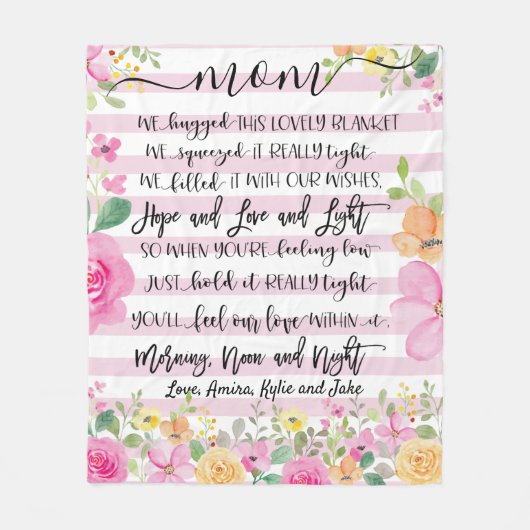 mom
WE hugged THIS LOVELY BLANKET
WE squeezed IT REALLY tight
WE filled IT WITH OUR WISHES,
Hope and Love and Light
SO WHEN YOU'RE feeling low
JUST hold it REALLY tight
YOU'LL feel our love WITHIN it,
Morning, Noon and Night
Love, Amira, Kylie and Jake